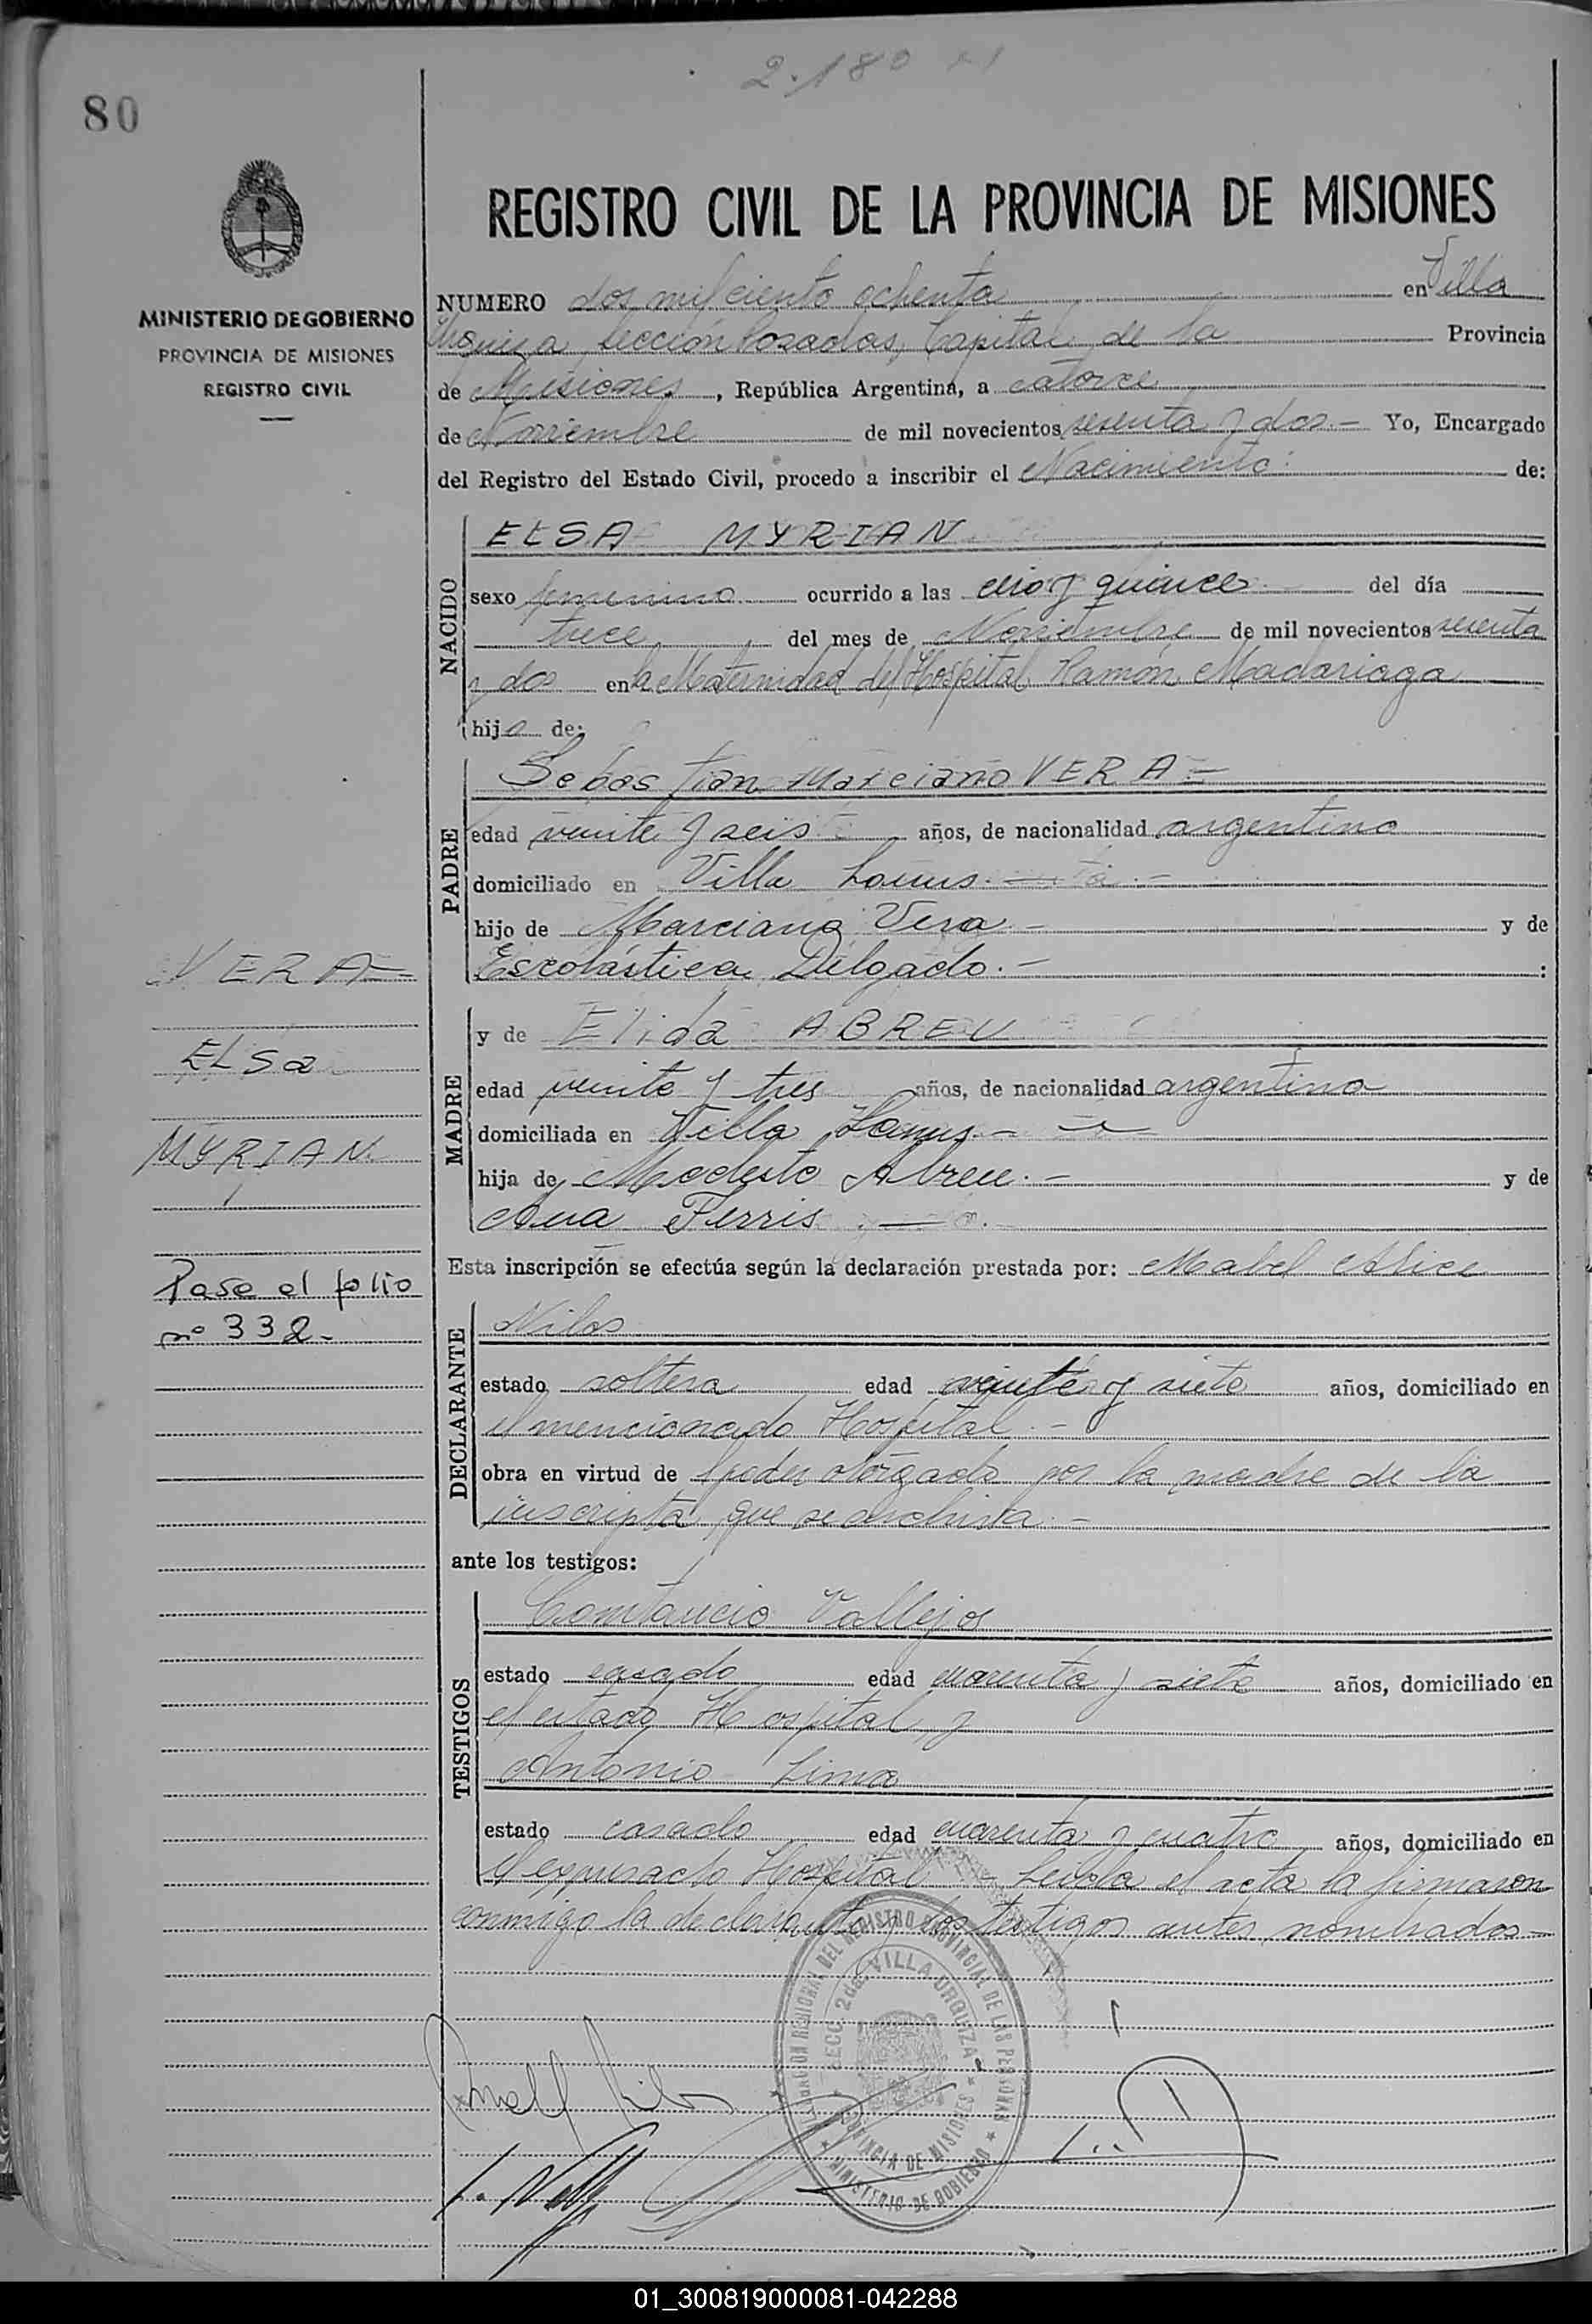 2.180
80
REGISTRO CIVIL DE LA PROVINCIA DE MISIONES
MINISTERIO DE GOBIERNO
PROVINCIA DE MISIONES
REGISTRO CIVIL
NUMERO dos mil ciento ochenta en Villa
Urquiza, sección Posadas, Capital de la Provincia
de Misiones, República Argentina, a catorce
de Noviembre de mil novecientos sesenta y dos.- Yo, Encargado
del Registro del Estado Civil, procedo a inscribir el Nacimiento: de:
NACIDO
ELSA MYRIAN
sexo femenino ocurrido a las y quince del día
trece del mes de Noviembre de mil novecientos sesenta
y dos en la Maternidad del Hospital Ramón Madariaga
hija de:
PADRE
Sebastian Marciano VERA=
edad veinte y seis años, de nacionalidad argentino
domiciliado en Villa Lanus.-
hijo de Marciano Vera.- y de
Escolástica Delgado.- :
VERA=
ELSa
MYRIAN
Pase al folio
nº 332.-
MADRE
y de Elida ABREU
edad veinte y tres años, de nacionalidad argentina
domiciliada en Villa Lanus.-
hija de Modesto Abreu.- y de
Ana Ferris.-
Esta inscripción se efectúa según la declaración prestada por: Mabel Alice
DECLARANTE
Nilos
estado soltera edad veinte y siete años, domiciliado en
el mencionado Hospital.-
obra en virtud de poder otorgado por la madre de la
inscripta, que se archiva.-
ante los testigos:
TESTIGOS
Constancio Vallejos
estado casado edad cuarenta y siete años, domiciliado en
el citado Hospital y
Antonio Lima
estado casado edad cuarenta y cuatro años, domiciliado en
el expresado Hospital.- Leida el acta la firmaron
conmigo la declarante y los testigos antes nombrados-
DEL REGISTRO PROVINCIAL DE LAS PERSONAS
SECC. 2da. VILLA URQUIZA
PROVINCIA DE MISIONES
MINISTERIO DE GOBIERNO
01_300819000081-042288